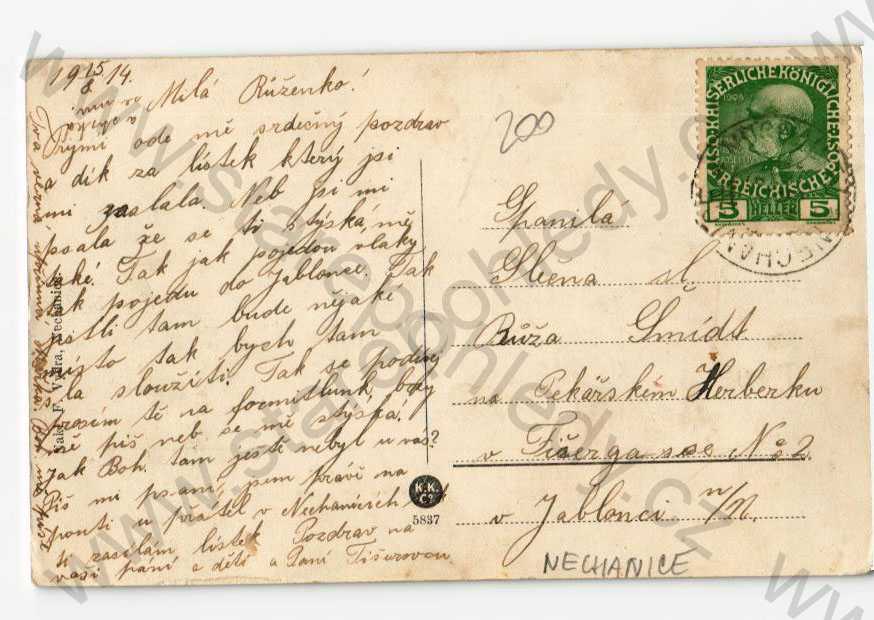 19 15/8 14.
Milá Růženko!
Přijmi ode mě srdečný pozdrav
a dík za lístek který jsi
mi zaslala. Neb jsi mi
psala že se ti stýská, mě
také. Tak jak pojedou vlaky
tak pojedu do Jablonce. Tak
jestli tam bude nějaké
místo tak bych tam
šla sloužiti. Tak se podívej
prosím tě na formitlunk, brzy
mě piš neb se mě stýská!
Jak Boh. tam ještě nebyl u vás?
Piš mi psaní, jsem právě na
pouti u přátel v Nechanicích
ti zasílám lístek Pozdrav na
vaši paní a děti a Paní Fišerovou
Nakl. F. Vydra, Nechanice.
K.K.
C?
5837
200
Spanilá
Slečna sl.
Růža Šmídt.
na Pekářském Herberku
v Fišerga sse No 2
v Jablonci n/N.
NECHANICE
KAISERLICHE KÖNIGLICHE ÖSTERREICHISCHE POST
5 HELLER 5
NECHAN
www.starepohledy.cz